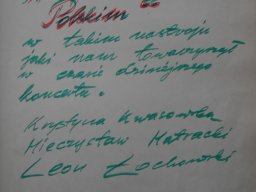 Polskim
w takim nastroju
jaki nam towarzyszył
w czasie dzisiejszego
koncertu.
Krystyna Kwasowska
Mieczysław Matracki
Leon Łochowski